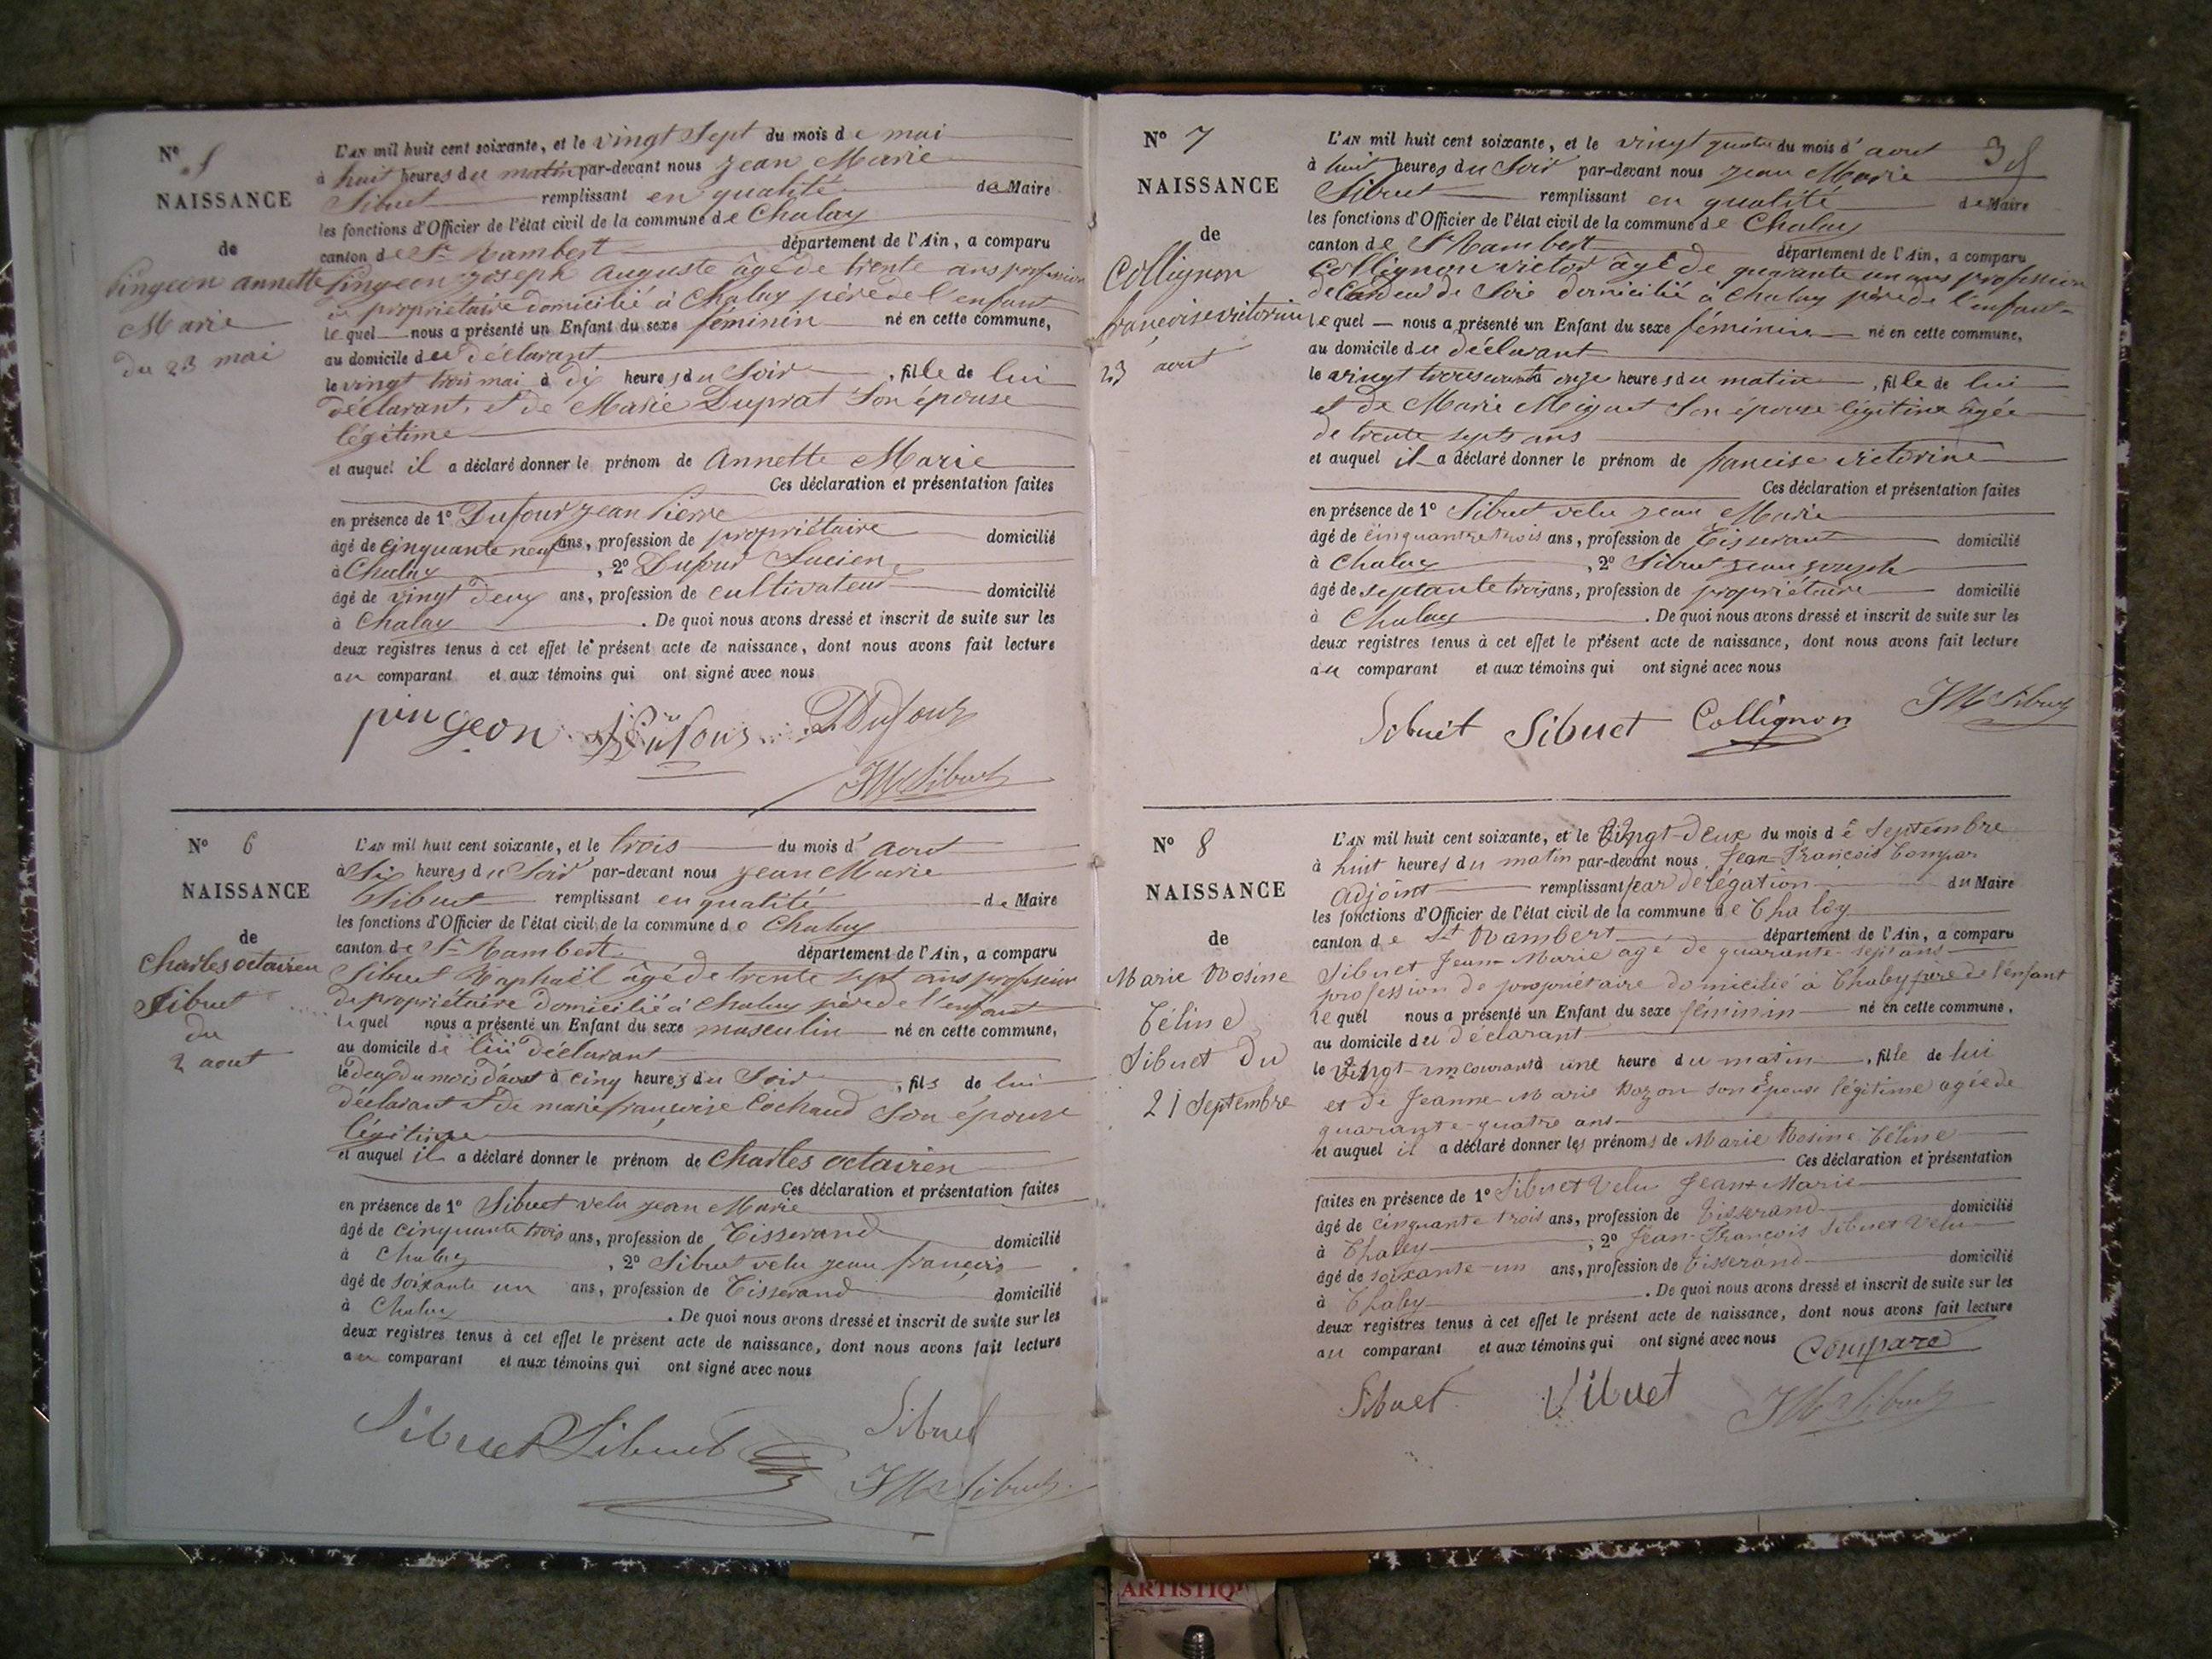 N° 5
NAISSANCE
de
Pingeon annette
Marie
du 23 mai
L'AN mil huit cent soixante, et le vingt Sept du mois de mai
à huit heures du matin par-devant nous Jean Marie
Sibuet remplissant en qualité de Maire
les fonctions d'Officier de l'état civil de la commune de Chaley
canton de St Rambert département de l'Ain, a comparu
Pingeon Joseph auguste âgé de trente ans profession
de propriétaire domicilié à Chaley père de l'enfant
le quel nous a présenté un Enfant du sexe féminin né en cette commune,
au domicile du déclarant
le vingt trois mai à dix heures du Soir, fille de lui
déclarant, et de Marie Duprat Son épouse
légitime
et auquel il a déclaré donner le prénom de Annette Marie
Ces déclaration et présentation faites
en présence de 1° Dufour Jean Pierre
âgé de cinquante neuf ans, profession de propriétaire domicilié
à Chaley, 2° Dufour Lucien
âgé de vingt deux ans, profession de cultivateur domicilié
à Chaley. De quoi nous avons dressé et inscrit de suite sur les
deux registres tenus à cet effet le présent acte de naissance, dont nous avons fait lecture
au comparant et aux témoins qui ont signé avec nous
pingeon Dufour Dufour
JM Sibuet
N° 6
NAISSANCE
de
Charles octavien
Sibuet
du
2 aout
L'AN mil huit cent soixante, et le trois du mois d'aout
à Six heures du Soir par-devant nous Jean Marie
Sibuet remplissant en qualité de Maire
les fonctions d'Officier de l'état civil de la commune de Chaley
canton de St Rambert département de l'Ain, a comparu
Sibuet Raphaël âgé de trente sept ans profession
de propriétaire domicilié à Chaley père de l'enfant
le quel nous a présenté un Enfant du sexe masculin né en cette commune,
au domicile de lui déclarant
le deux du mois d'aout à cinq heures du Soir, fils de lui
déclarant et de marie françoise Cochaud Son épouse
légitime
et auquel il a déclaré donner le prénom de Charles octavien
Ces déclaration et présentation faites
en présence de 1° Sibuet velu Jean Marie
âgé de cinquante trois ans, profession de Tisserand domicilié
à Chaley, 2° Sibuet velu Jean françois
âgé de soixante un ans, profession de Tisserand domicilié
à Chaley. De quoi nous avons dressé et inscrit de suite sur les
deux registres tenus à cet effet le présent acte de naissance, dont nous avons fait lecture
au comparant et aux témoins qui ont signé avec nous
Sibuet Sibuet Sibuet
JM Sibuet
N° 7
NAISSANCE
de
Collignon
françoise victorine
23 aout
L'AN mil huit cent soixante, et le vingt quatre du mois d'aout
à huit heures du Soir par-devant nous Jean Marie
Sibuet remplissant en qualité de Maire
les fonctions d'Officier de l'état civil de la commune de Chaley
canton de St Rambert département de l'Ain, a comparu
Collignon victor âgé de quarante un ans profession
de Cardeur de Soie domicilié à Chaley père de l'enfant
le quel nous a présenté un Enfant du sexe féminin né en cette commune,
au domicile du déclarant
le vingt trois courant à onze heures du matin, fille de lui
et de Marie Miguet Son épouse légitime âgée
de trente septs ans
et auquel il a déclaré donner le prénom de francise victorine
Ces déclaration et présentation faites
en présence de 1° Sibuet velu Jean Marie
âgé de cinquante trois ans, profession de Tisserant domicilié
à Chaley, 2° Sibuet Jean Joseph
âgé de septante trois ans, profession de propriétaire domicilié
à Chaley. De quoi nous avons dressé et inscrit de suite sur les
deux registres tenus à cet effet le présent acte de naissance, dont nous avons fait lecture
au comparant et aux témoins qui ont signé avec nous
Sibuet Sibuet Collignon JM Sibuet
N° 8
NAISSANCE
de
Marie Rosine
Céline
Sibuet du
21 Septembre
L'AN mil huit cent soixante, et le Vingt-deux du mois de Septembre
à huit heures du matin par-devant nous Jean-François Compar
Adjoint remplissant par délégation du Maire
les fonctions d'Officier de l'état civil de la commune de Chaley
canton de St Rambert département de l'Ain, a comparu
Sibuet Jean-Marie agé de quarante-sept ans
profession de propriétaire domicilié à Chaley père de l'enfant
le quel nous a présenté un Enfant du sexe féminin né en cette commune,
au domicile du déclarant
le Vingt-un courant à une heure du matin, fille de lui
et de Jeanne-Marie Bozon son épouse légitime agée de
quarante-quatre ans
et auquel il a déclaré donner les prénoms de Marie Rosine Céline
Ces déclaration et présentation
faites en présence de 1° Sibuet Velu Jean-Marie
âgé de cinquante trois ans, profession de tisserand domicilié
à Chaley, 2° Jean-François Sibuet Velu
âgé de soixante-un ans, profession de tisserand domicilié
à Chaley. De quoi nous avons dressé et inscrit de suite sur les
deux registres tenus à cet effet le présent acte de naissance, dont nous avons fait lecture
au comparant et aux témoins qui ont signé avec nous Compare
Sibuet Sibuet JM Sibuet
ARTISTIQ